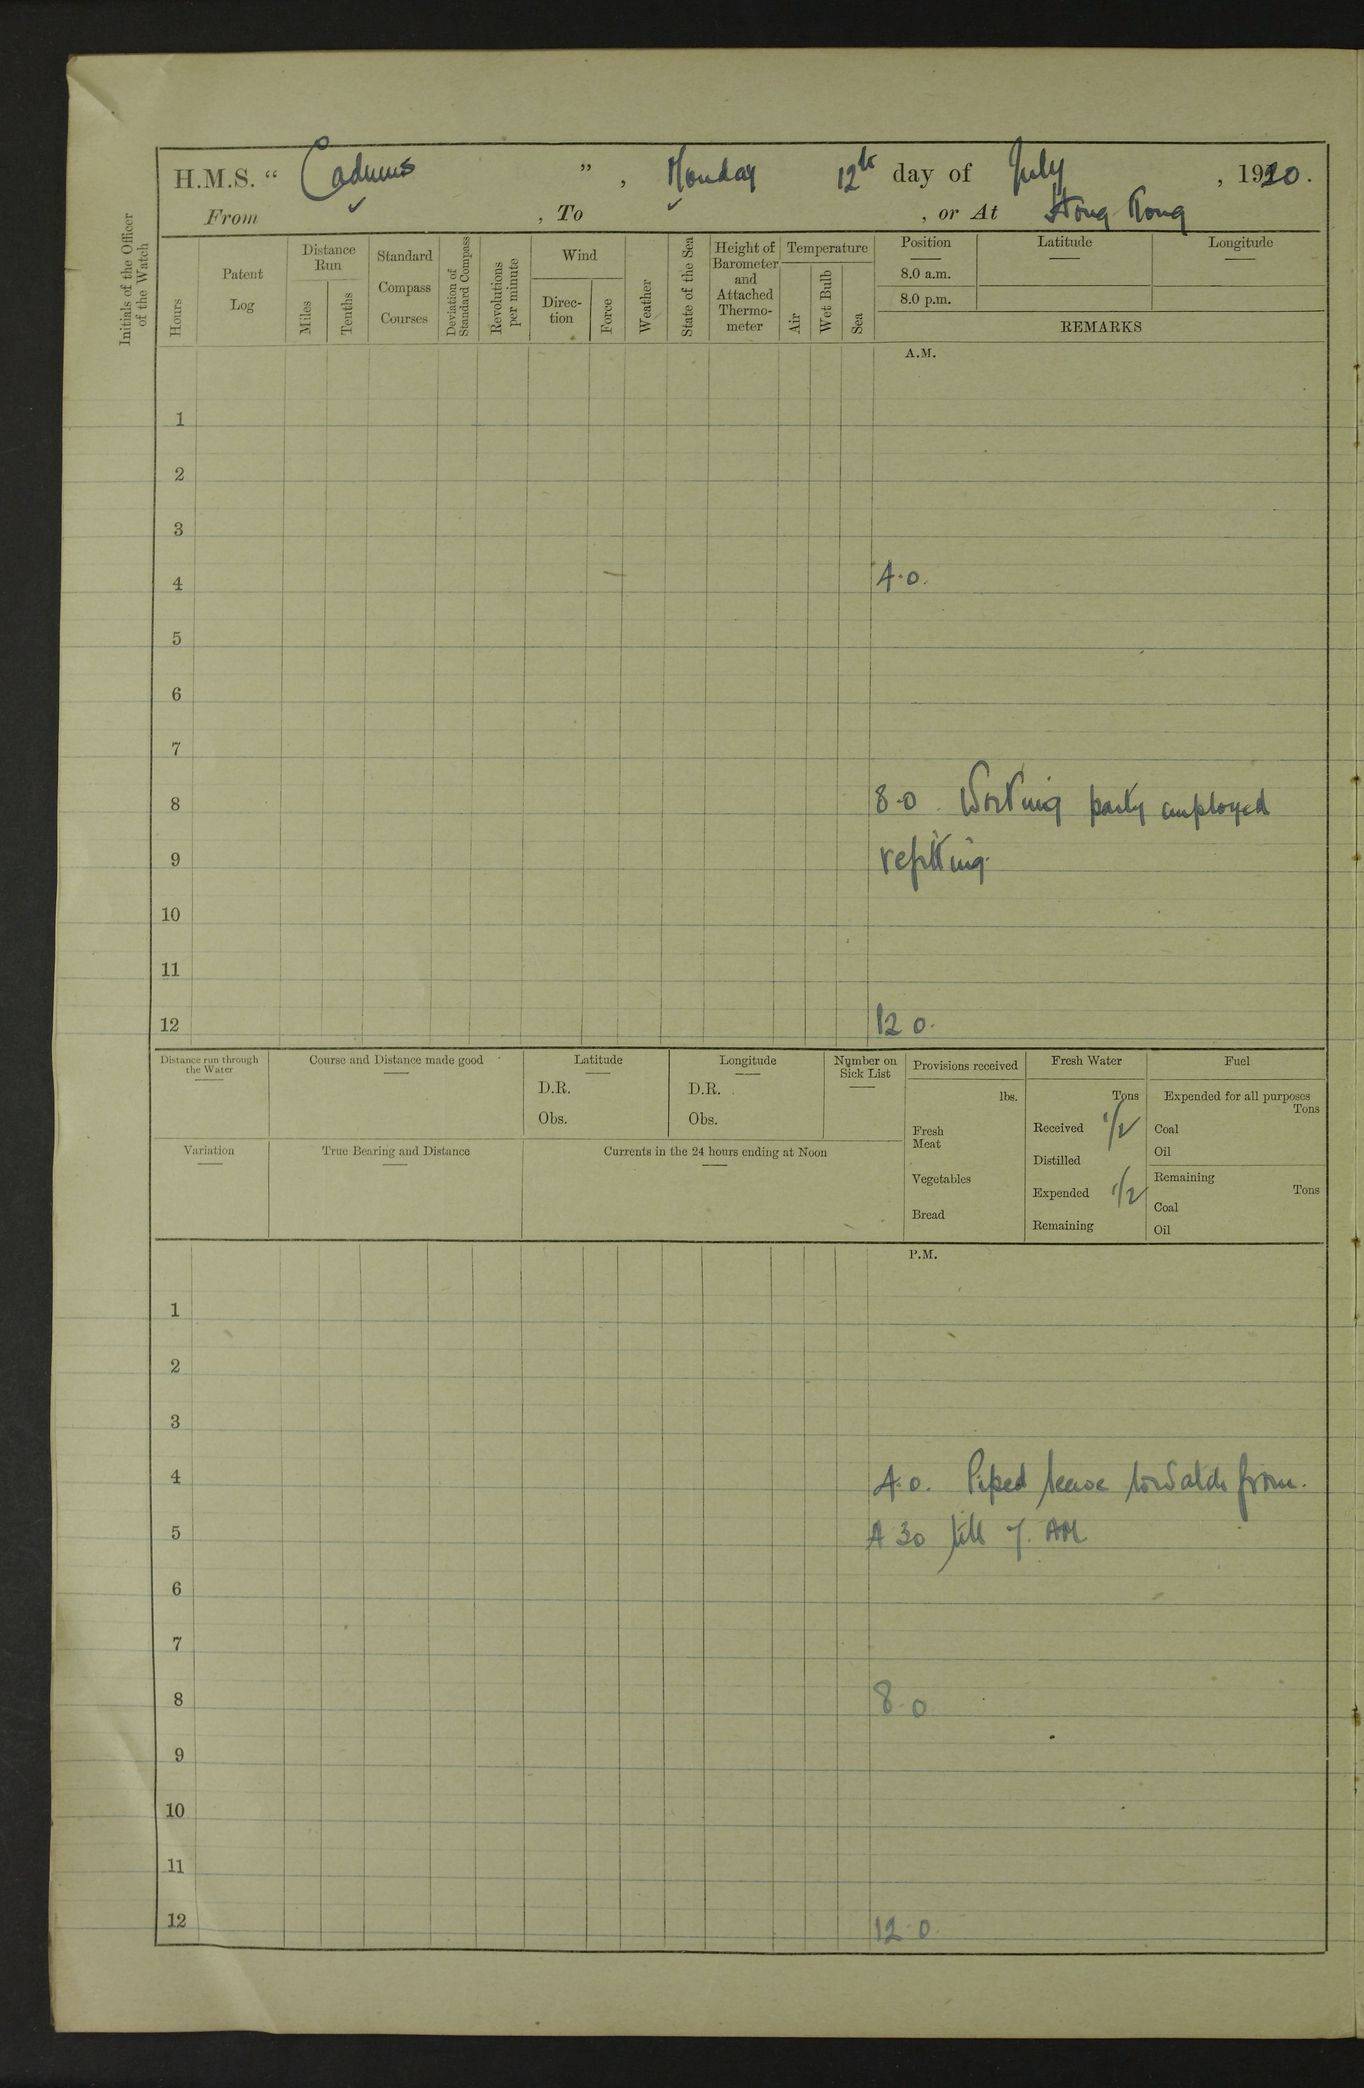 H.M.S. “ Cadmus ” , Monday 12th day of July , 1920.
From ✓ , To ✓ , or At Hong Kong
Initials of the Officer of the Watch
Hours
Patent Log
Distance Run
Miles
Tenths
Standard Compass Courses
Deviation of Standard Compass
Revolutions per minute
Wind
Direc-tion
Force
Weather
State of the Sea
Height of Barometer and Attached Thermo-meter
Temperature
Air
Wet Bulb
Sea
Position
Latitude
Longitude
8.0 a.m.
8.0 p.m.
REMARKS
A.M.
1
2
3
4 4.0.
5
6
7
8 8.0. Working party employed
9 refitting.
10
11
12 12 0.
Distance run through the Water
Course and Distance made good
Latitude
D.R.
Obs.
Longitude
D.R.
Obs.
Number on Sick List
Provisions received
lbs.
Fresh Meat
Vegetables
Bread
Fresh Water
Tons
Received 1/2
Distilled
Expended 1/2
Remaining
Fuel
Expended for all purposes
Tons
Coal
Oil
Remaining
Tons
Coal
Oil
Variation
True Bearing and Distance
Currents in the 24 hours ending at Noon
P.M.
1
2
3
4 4.0. Piped leave to watch from.
5 4 30 till 7. AM
6
7
8 8.0
9
10
11
12 12.0